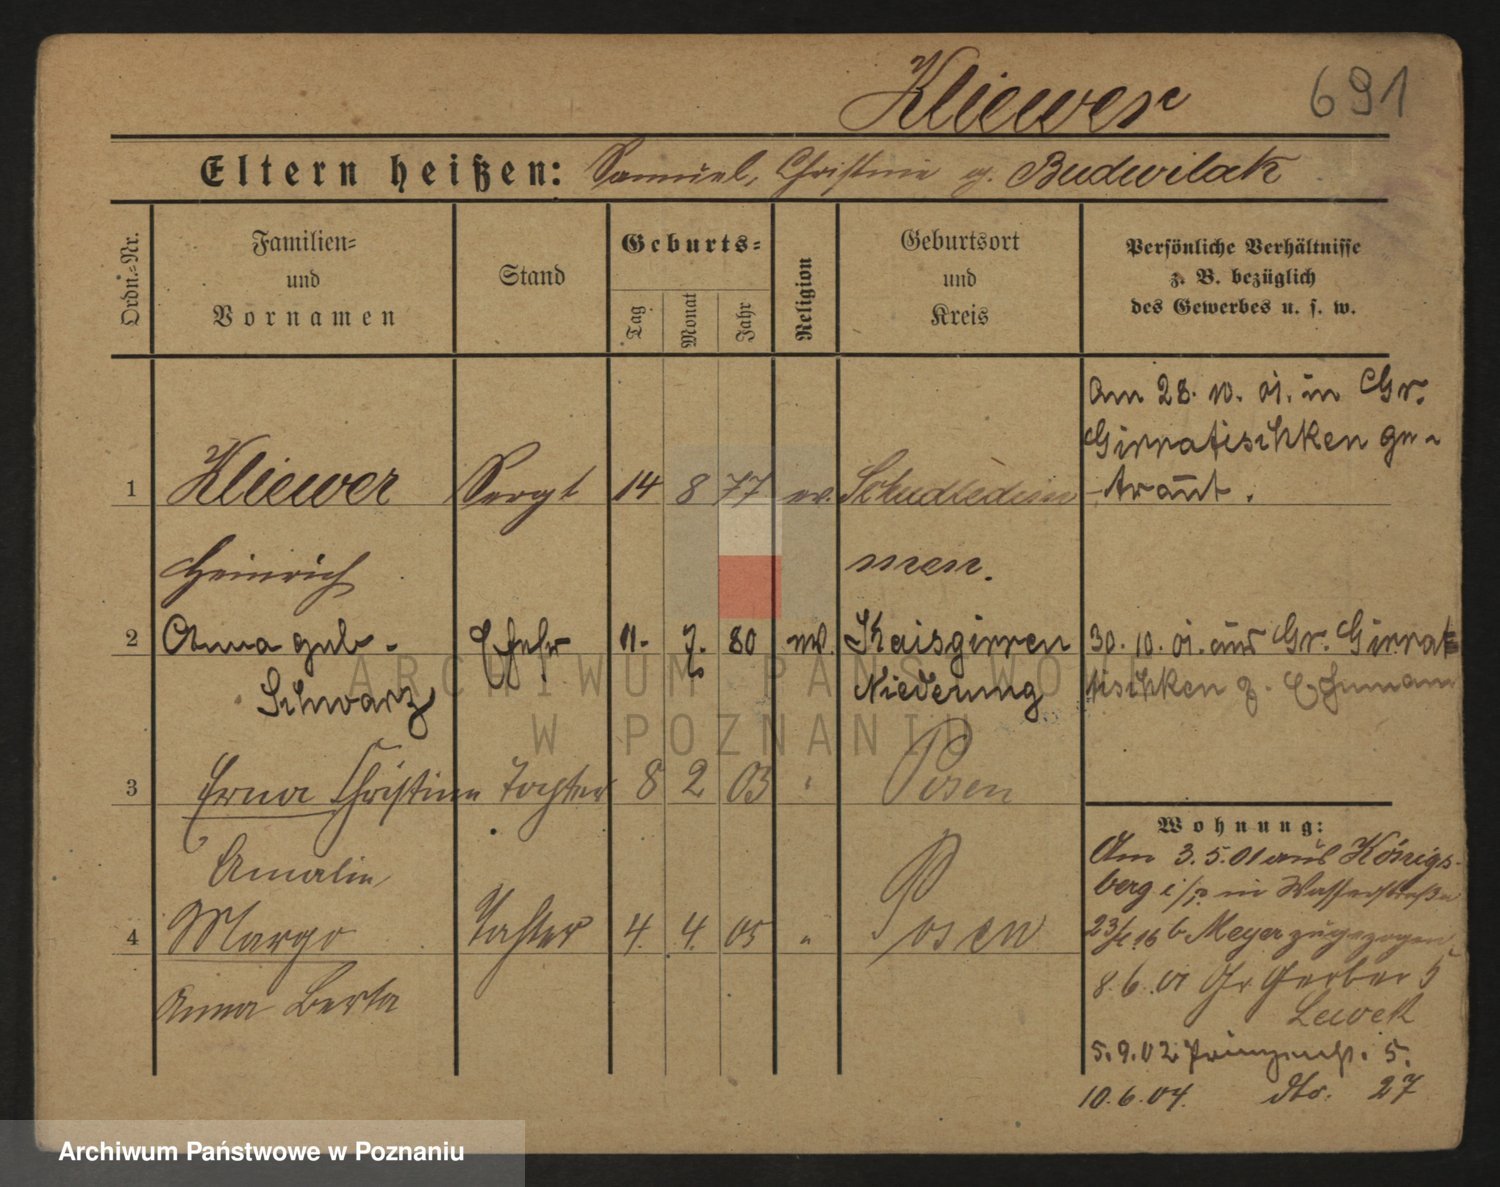 Kliewer 691
Eltern heißen: Samuel, Christine g. Budwilak
Ordn.=Nr.
Familien=
und
Vornamen
Stand
Geburts=
Tag
Monat
Jahr
Religion
Geburtsort
und
Kreis
Persönliche Verhältnisse
z. B. bezüglich
des Gewerbes u. s. w.
Am 28. 10. 01. in Gr.
Girratischken ge-
traut.
1 Kliewer Sergt 14 8 77 ev.
Heinrich men.
2 Anna geb. Ehefr 11. 7. 80 ev. Kaisgirren 30. 10. 01. aus Gr. Girrat
Schwarz Niederung tischken z. Ehemann
3 Erna Christine Tochter 8 2 03 " Posen
Amalie
4 Margo Tochter 4. 4. 05 " Posen
Anna Berta
Wohnung:
Am 3.5.01 aus Königs-
berg i/p in Wasserstraße
23/ 16 b Meyer zugezogen
8.6.01 Gr Gerber 5
Lewek
5.9.02 Prinzenst. 5.
10.6.04. dto. 27
ARCHIWUM PAŃSTWOWE
W POZNANIU
Archiwum Państwowe w Poznaniu